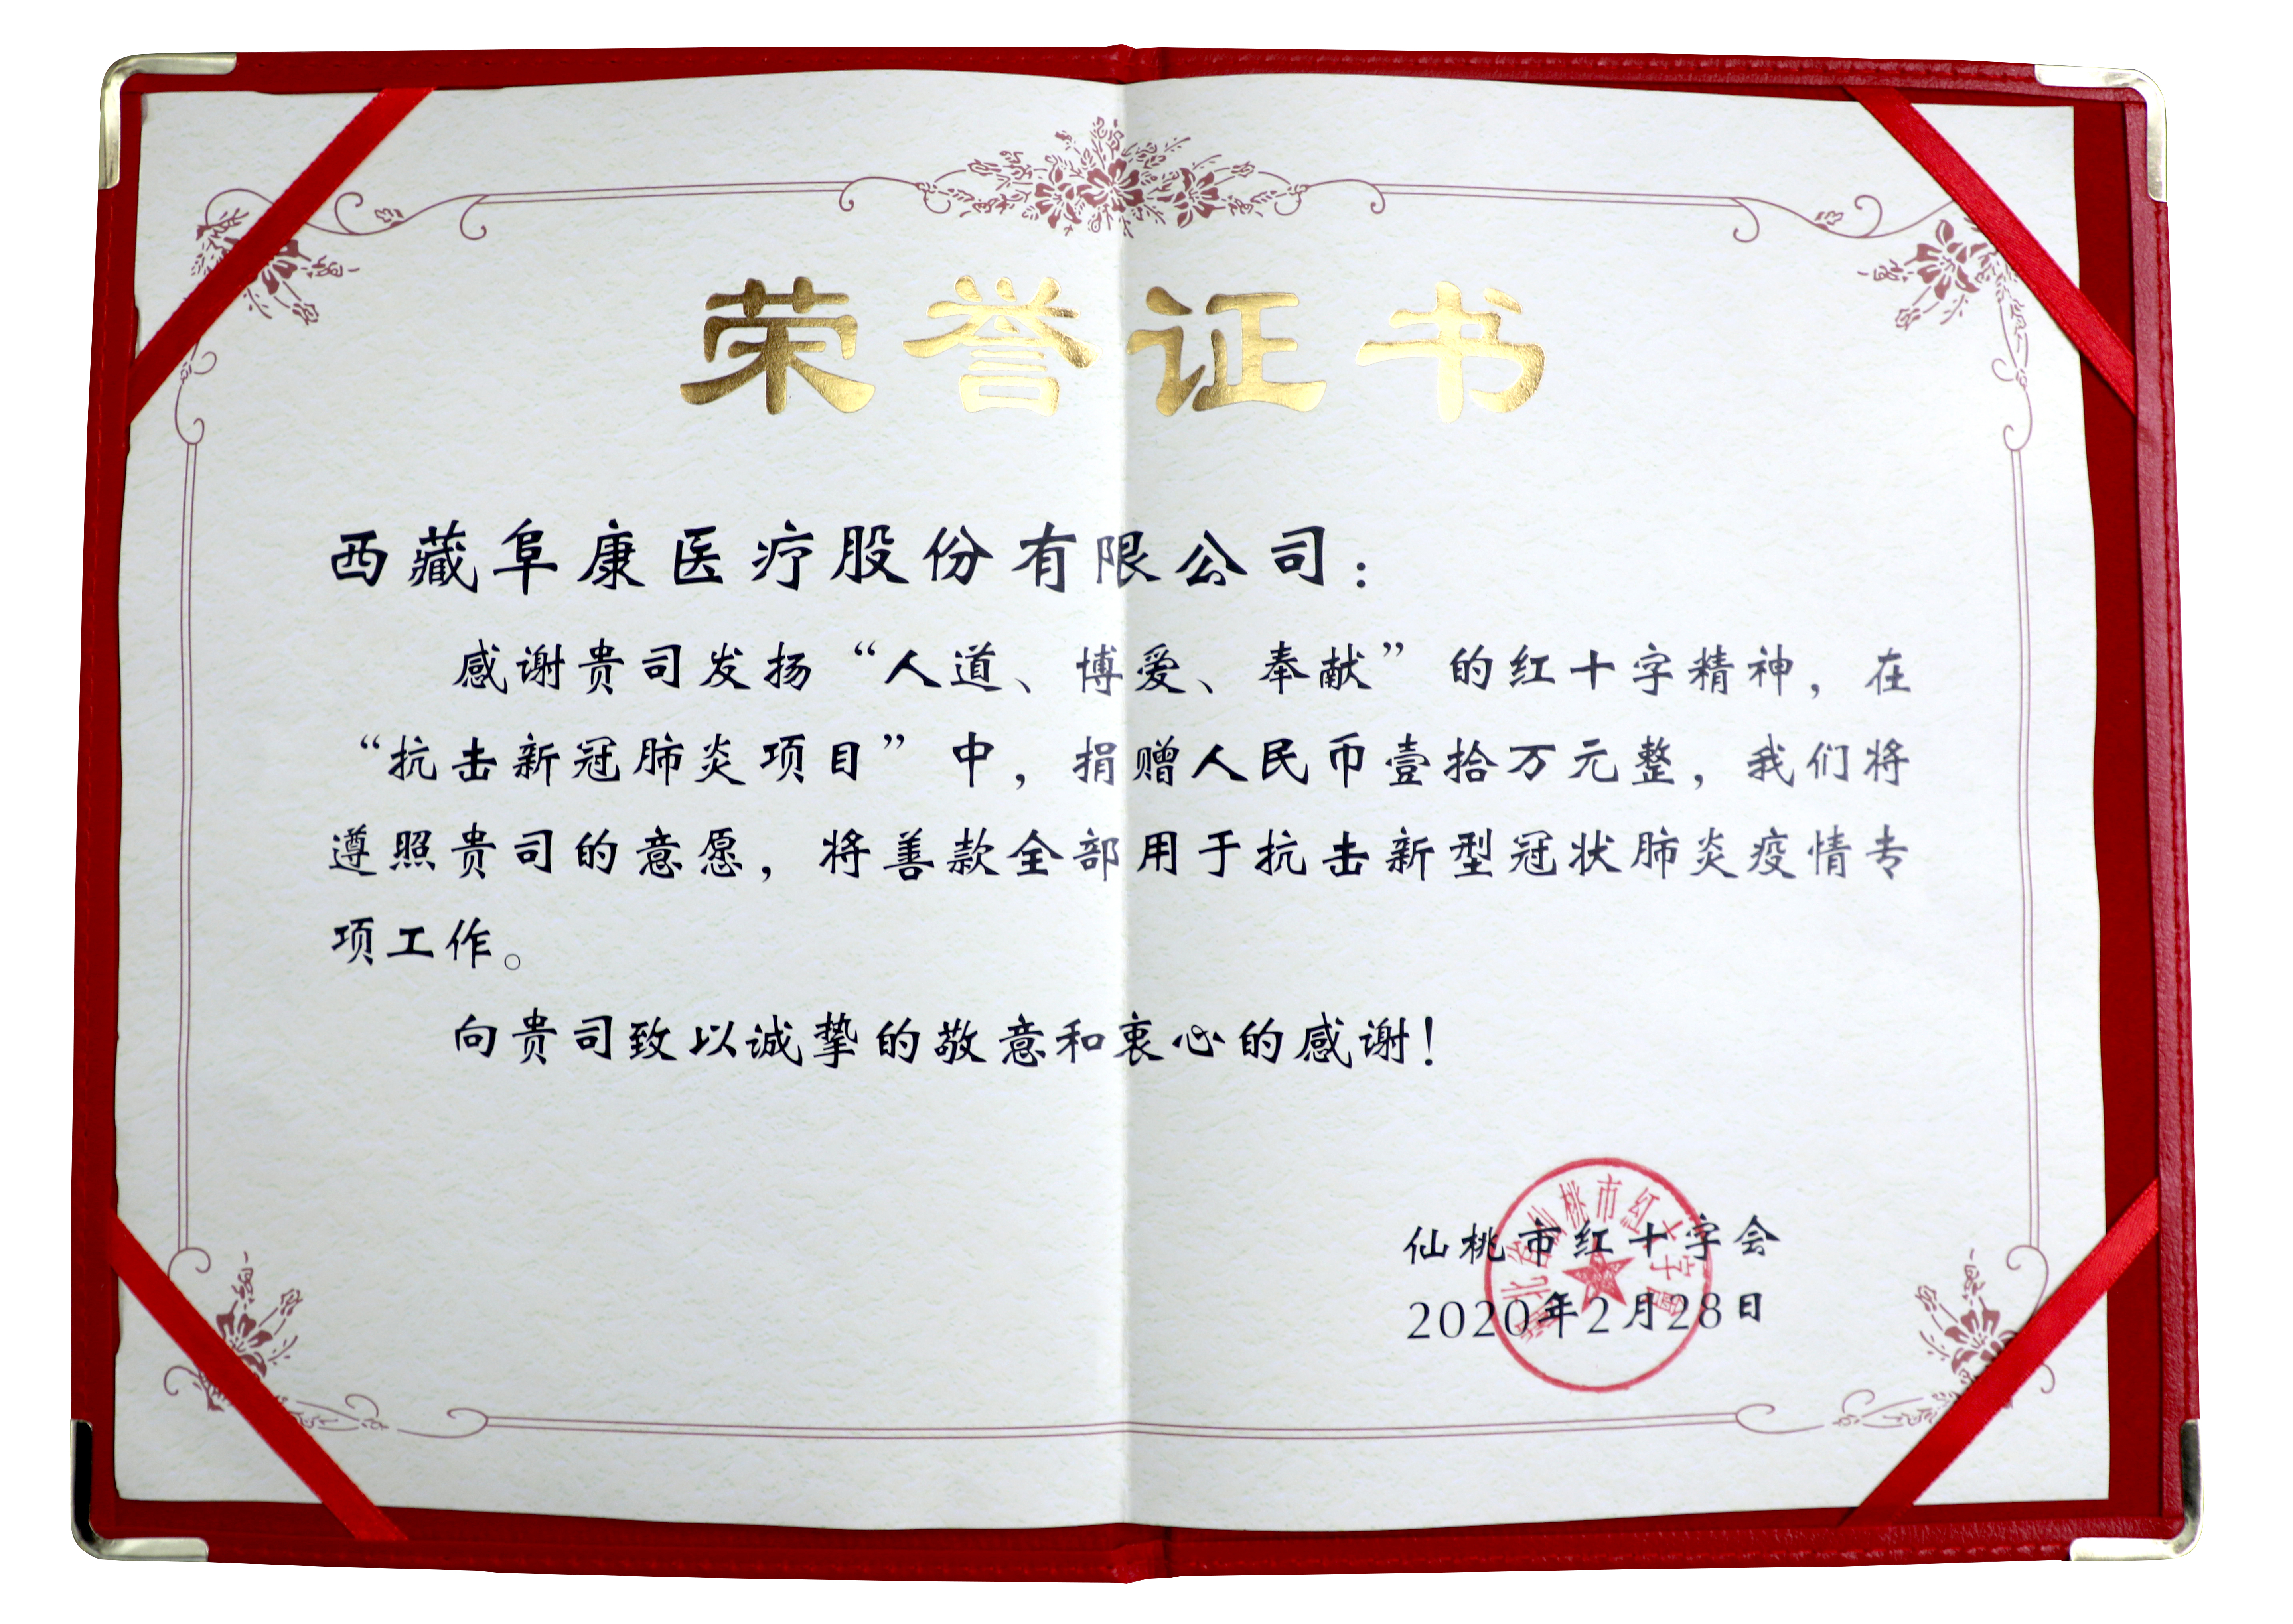 荣誉证书
西藏阜康医疗股份有限公司：
感谢贵司发扬“人道、博爱、奉献”的红十字精神，在
“抗击新冠肺炎项目”中，捐赠人民币壹拾万元整，我们将
遵照贵司的意愿，将善款全部用于抗击新型冠状肺炎疫情专
项工作。
向贵司致以诚挚的敬意和衷心的感谢！
仙桃市红十字会
2020年2月28日
湖北省仙桃市红十字會